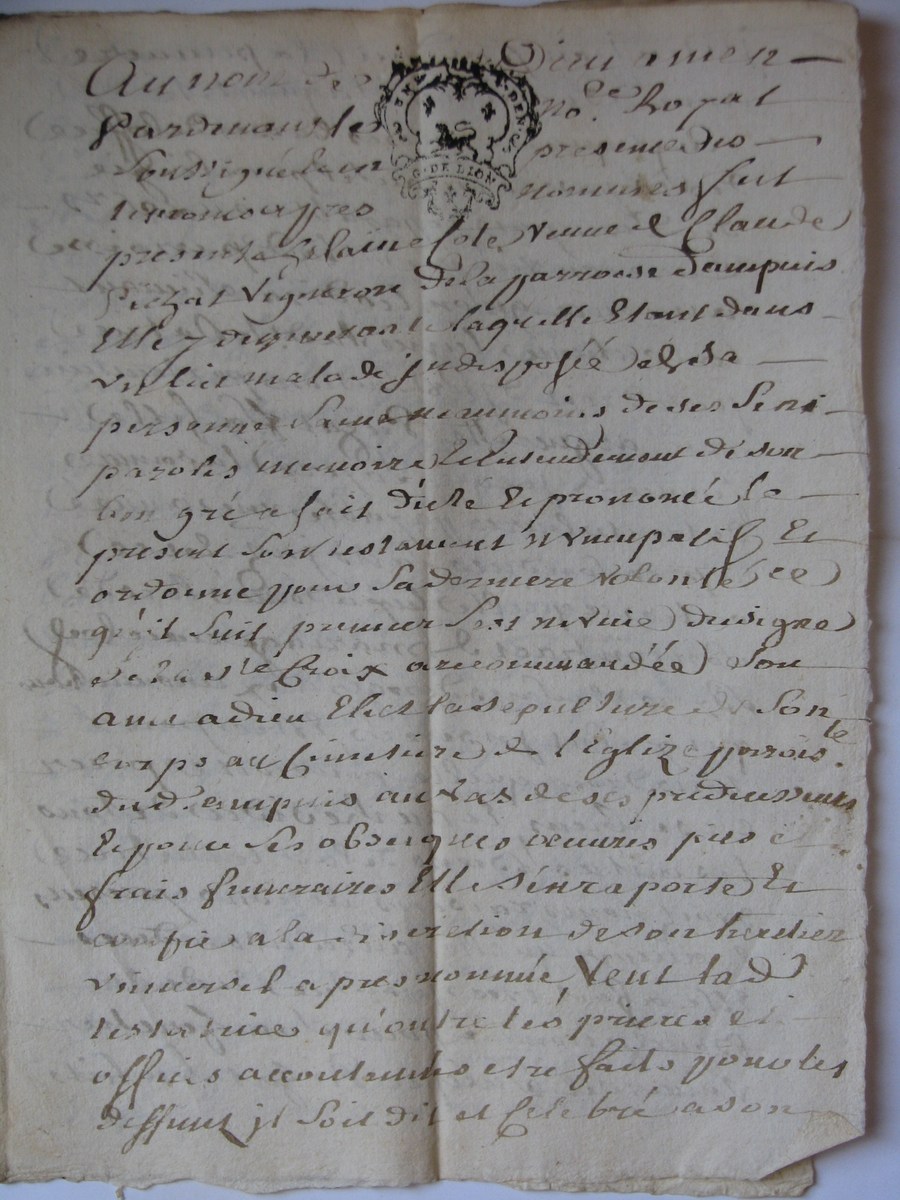 Au nom de Dieu amen
Pardevant le no.re Royal
soussigné et en presence des
temoins apres nommés fut
presente helaine veuve de Claude
vigneron de la parroisse dampuis
Elle y demeurant laquelle Etant dans
un lict malade jndisposée de sa
personne saine neammoins de ses sens
parolles memoire Et Entendement de son
bon gré a fait dicté Et prononcé le
present son testament nuncupatif Et
ordonne pour sa derniere volontée ce
qu'jl suit premierement munie du signe
de la s.te Croix a recommandée son
ame a dieu Elict la sepulture de son
corps au Cimetiere de l'Eglize parois.le
dud. ampuis au vas de ses predecesseurs
Et pour ses obseques oeuvres pies et
frais funeraires Elle s'en raporte Et
confie a la discretion de son heritier
universel apres nommée Veut lad.
testatrice qu'outre les prieres et
offices accoutumés estre faits pour les
deffunt jl soit dit et Celebré a son
G. DE LION